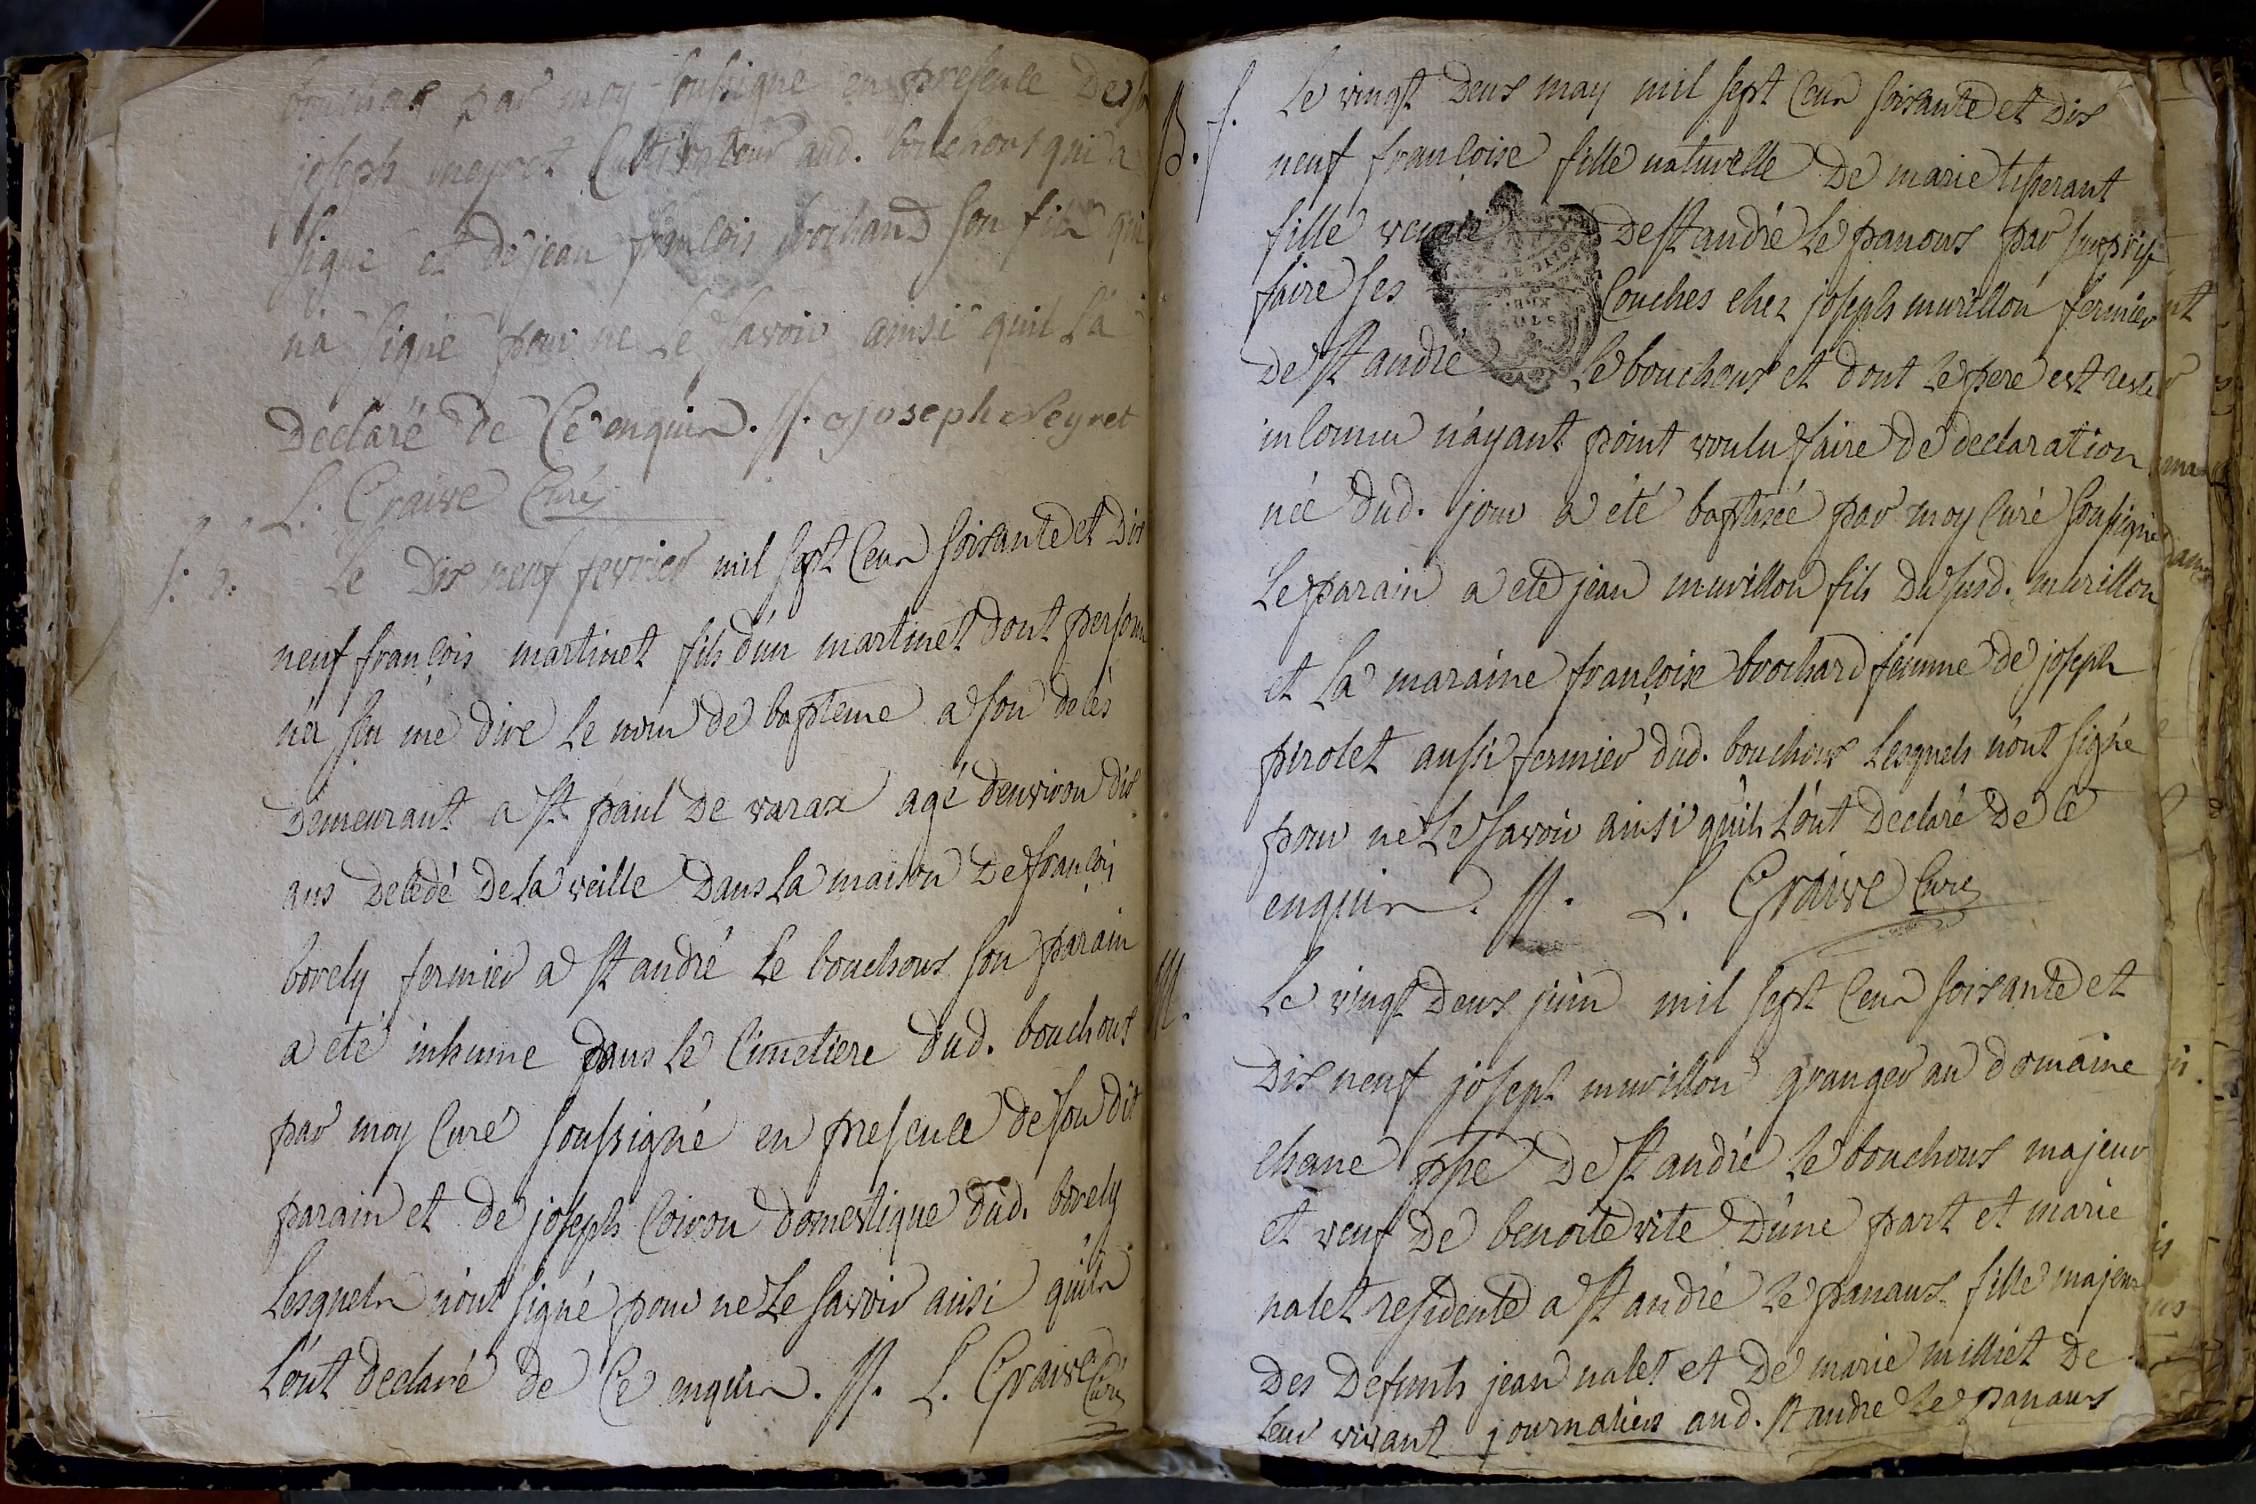 bouchoux par moy soussigné en presence de
joseph Cultivateur aud. bouchoux qui a
signé et de jean françois brochand son fils qui
n'a signé pour ne le savoir ainsi quil l'a
declaré de Ce enquis. //. joseph Neyret
L. Graive Curé
S. h. Le dix neuf fevrier mil sept Cens soixante et dix
neuf françois martinet fils d'un martinet dont person
n'a su me dire le nom de bapteme a son déces
demeurant a St paul de varax agé d'environ dix
ans decedé de la veille dans la maison de françois
bovely fermier a St andré le bouchoux son parain
a été inhume dans le Cimetiere dud. bouchoux
par moy Curé soussigné en presence de son dit
parain et de joseph Coiron domestique dud. bovely
Lesquels n'ont signé pour ne le savoir ainsi quils
l'ont declaré de Ce enquis. //. L. Graive Curé
B. f. Le vingt deux may mil sept Cens soixante et dix
neuf françoise fille naturelle de marie tisserant
fille de St andré le panoux par
faire ses Couches chez joseph murillon fermier
de St andré le bouchoux et dont le pere est resté
inconnu n'ayant point voulu faire de declaration
née dud. jour a été baptisée par moy Curé soussigné
Le parain a eté jean murillon fils du susd. murillon
et la maraine françoise brochard femme de joseph
pirolet aussi fermier dud. bouchoux Lesquels n'ont signé
pour ne le savoir ainsi quils l'ont declaré de Ce
enquis. //. L. Graive Curé
M. Le vingt deux juin mil sept Cens soixante et
dix neuf joseph murillon granger au domaine
chane psse de St andré le bouchoux majeur
et veuf de benoite vite d'une part et marie
nalet residente a St andré le panoux fille majeure
des defunts jean nalet et de marie milliet de
leur vivant journaliers aud. St andré le panoux